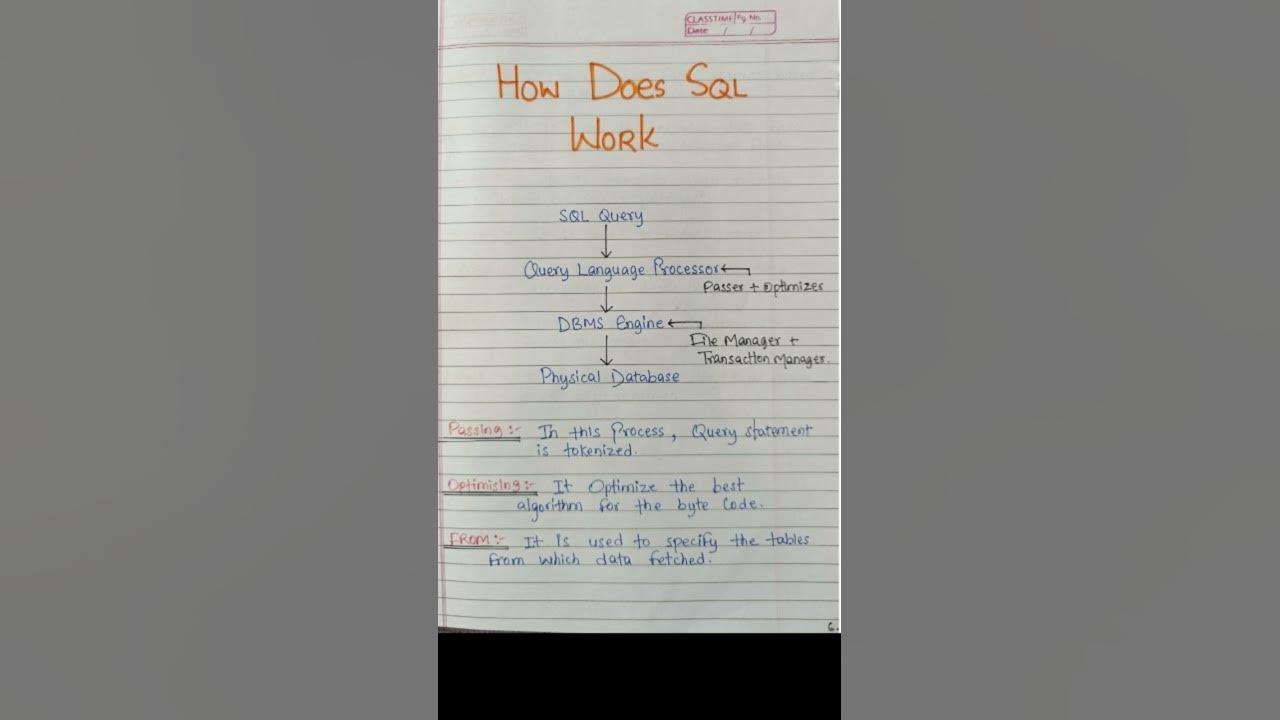 CLASSTIME Pg. No.
Date / /
How Does SQL
Work
SQL Query
Query Language Processor
Passer + Optimizer
DBMS Engine
File Manager +
Transaction Manager.
Physical Database
Passing :- In this Process, Query statement
is tokenized.
Optimising :- It Optimize the best
algorithm for the byte Code.
FROM :- It is used to specify the tables
from which data fetched.
6.